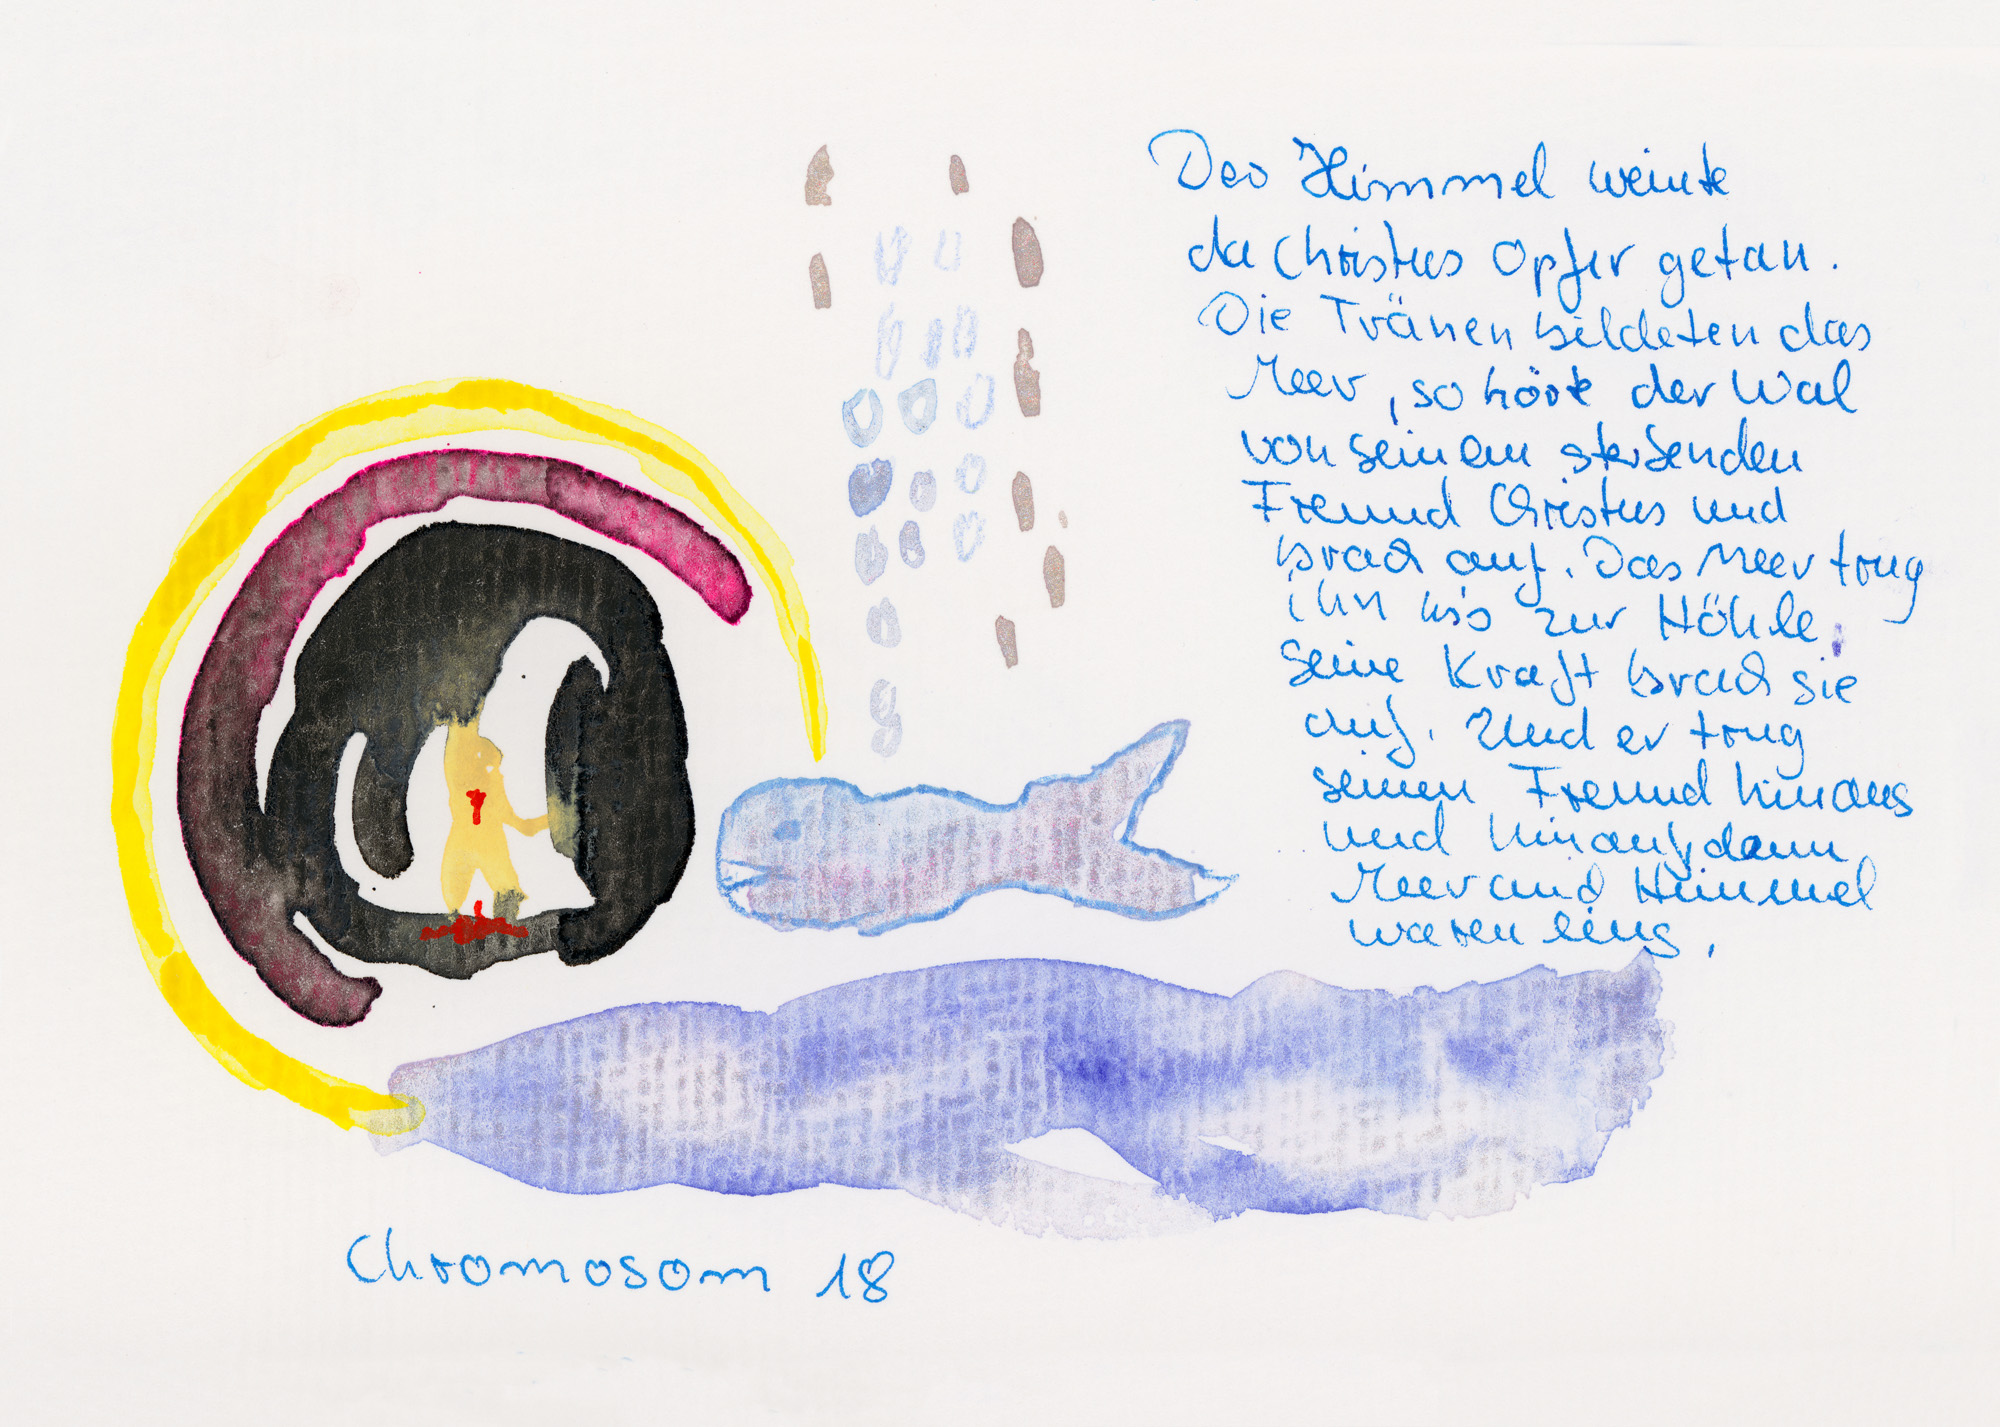 Der Himmel weinte
da Christus Opfer getan.
Die Tränen bildeten das
Meer, so hörte der Wal
von seinem sterbenden
Freund Christus und
brach auf. Das Meer trug
ihn bis zur Höhle
seine Kraft brach sie
auf. Und er trug
seinen Freund hinaus
und hinauf, dann
Meer und Himmel
waren eins.
Chromosom 18